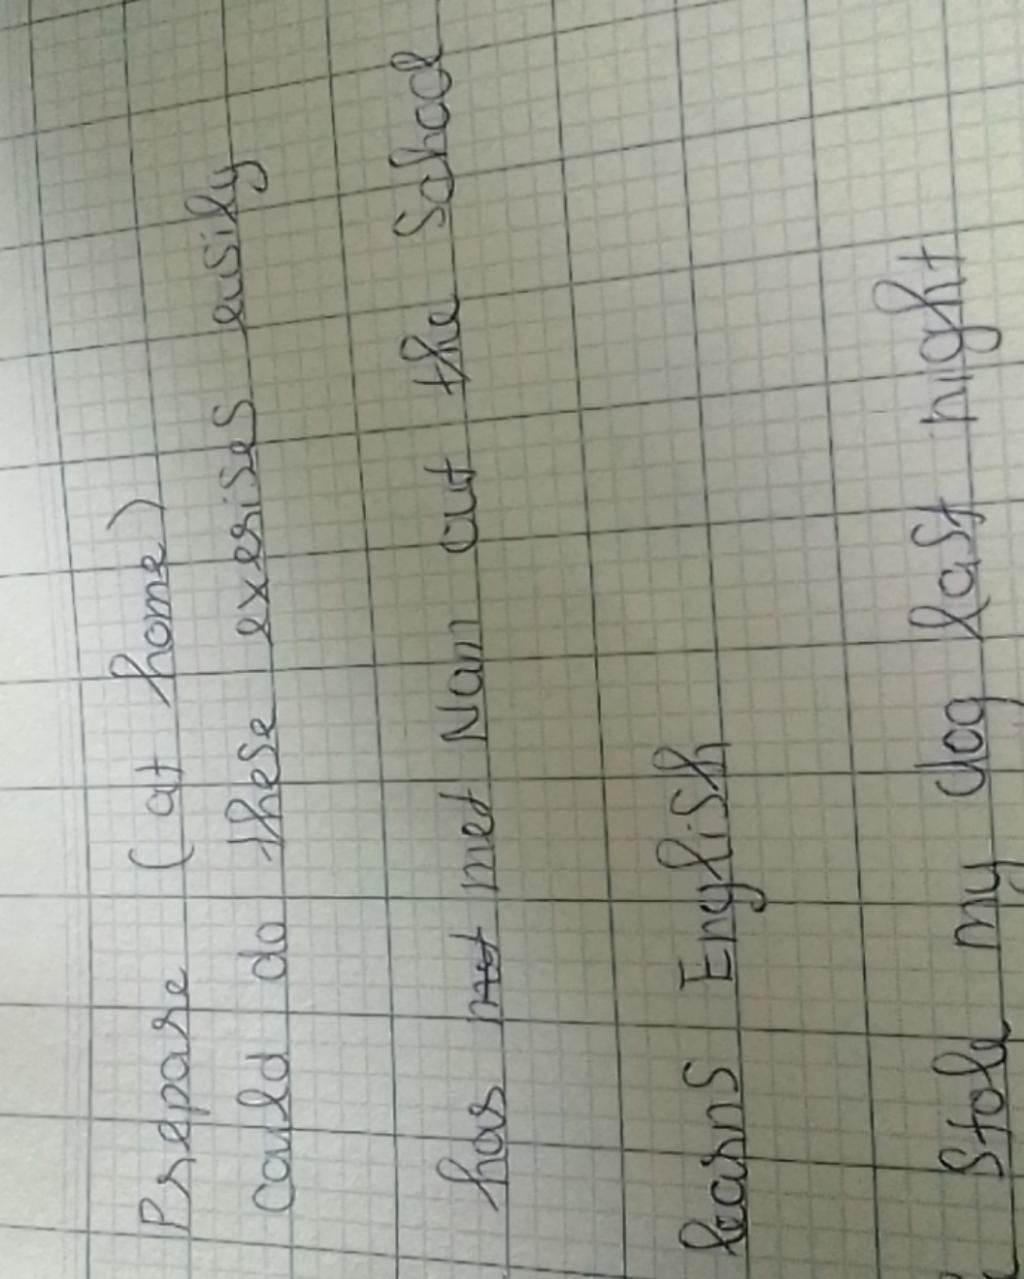 Prepare (at home)
could do these exerises easily
has met Nan out the School
learns English
stole my dog last night